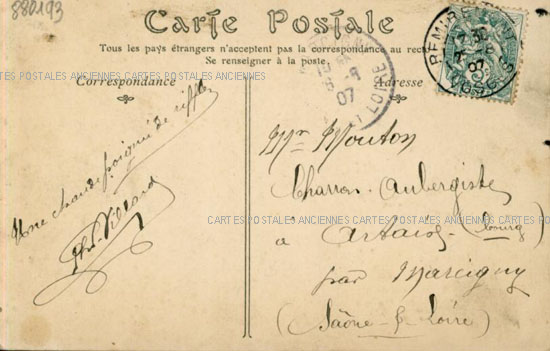 880193
Carte Postale
Tous les pays étrangers n'acceptent pas la correspondance au recto
Se renseigner à la poste.
CARTES POSTALES ANCIENNES CARTES POSTALES ANCIENNES CARTES POSTALES ANCIENNES CARTES POSTALES ANCIENNES
Correspondance
Adresse
Une chaude poignée de
Villard
Mr Mouton
Charron-Aubergiste
CARTES POSTALES ANCIENNES CARTES POSTALES ANCIENNES CARTES POSTALES ANCIENNES
à Artaix (bourg)
par Marcigny
(Saône-&-Loire)
07
LOIRE
07
VOSGES